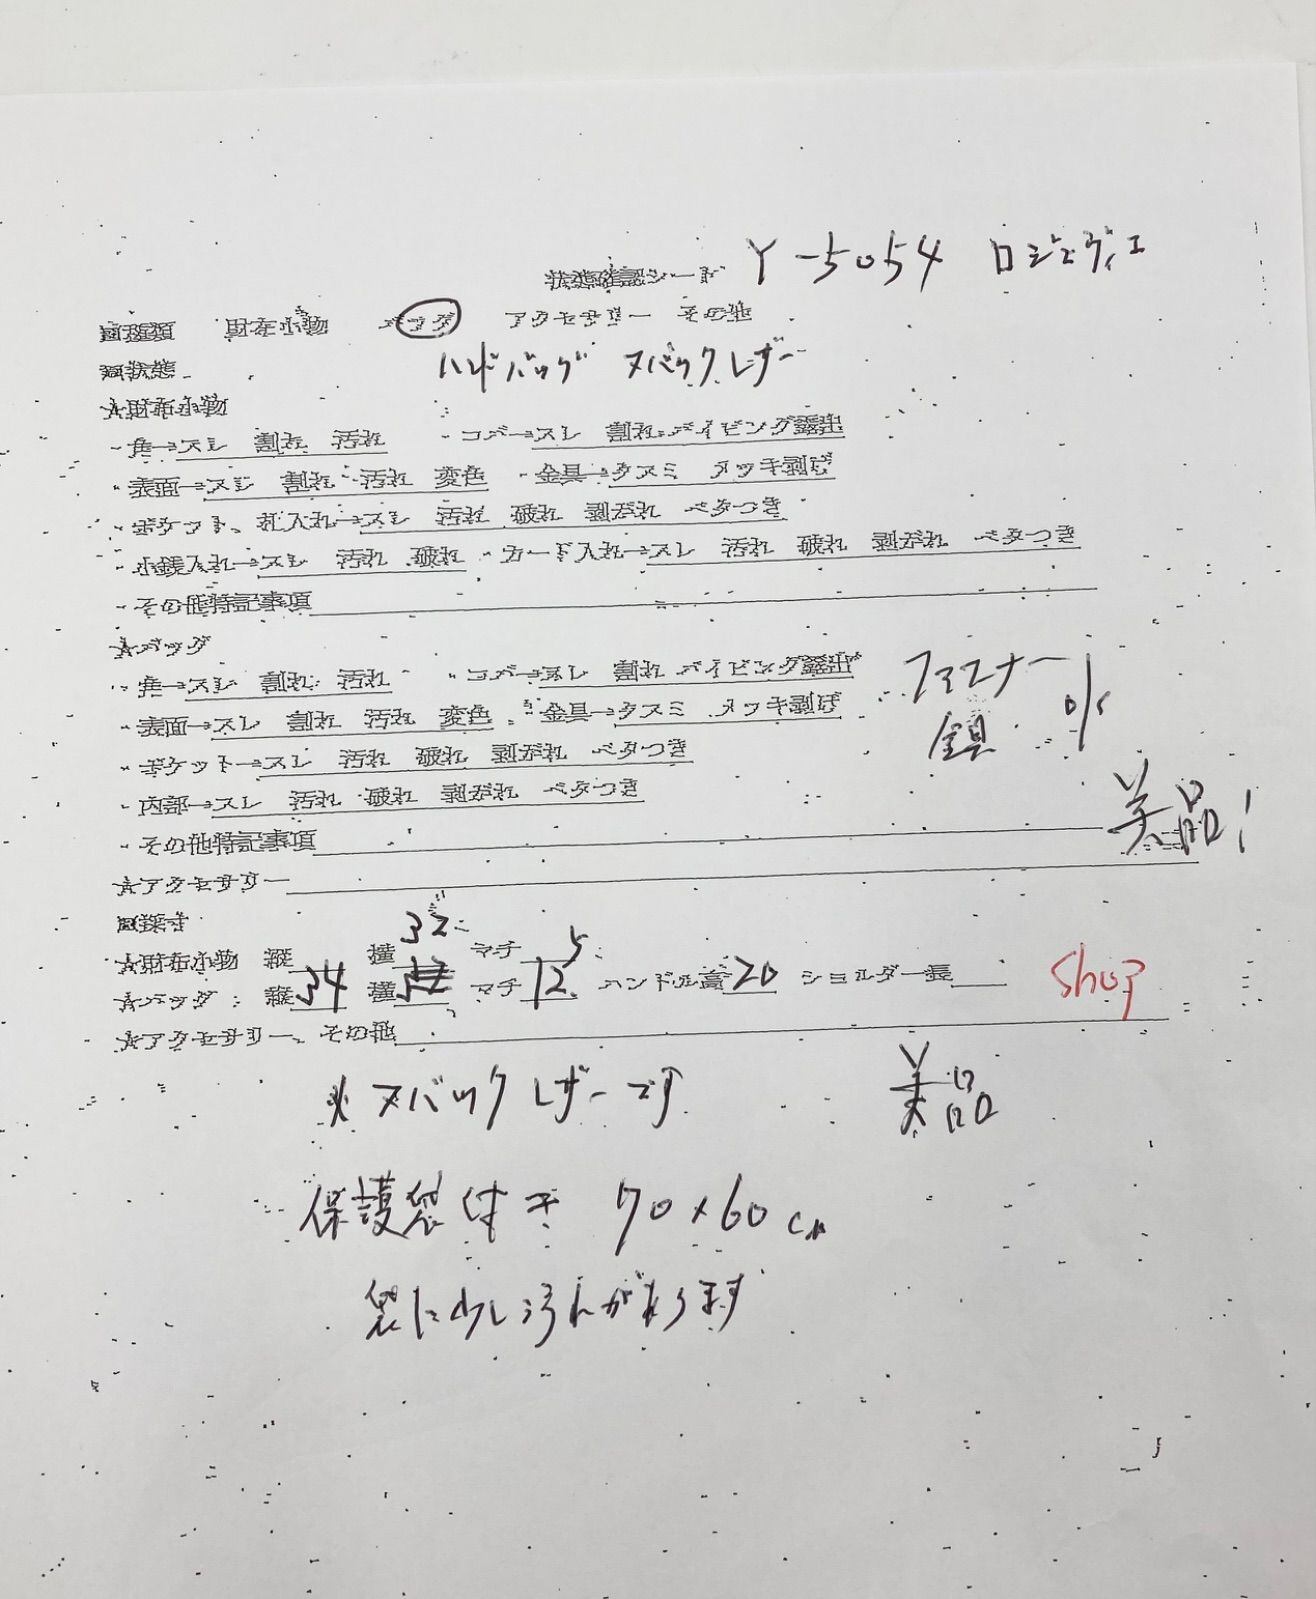 状態確認シート Y-5054 ロジェヴィエ
■種類 財布小物 バッグ アクセサリー その他
■状態 ハンドバッグ ヌバックレザー
★財布小物
・角→スレ 割れ 汚れ ・コバ→スレ 割れ パイピング露出
・表面→スレ 割れ 汚れ 変色 ・金具→クスミ メッキ剥げ
・ポケット、札入れ→スレ 汚れ 破れ 剥がれ ベタつき
・小銭入れ→スレ 汚れ 破れ ・カード入れ→スレ 汚れ 破れ 剥がれ ベタつき
・その他特記事項
★バッグ
・角→スレ 割れ 汚れ ・コバ→スレ 割れ パイピング露出 ファスナー
・表面→スレ 割れ 汚れ 変色 ・金具→クスミ メッキ剥げ
・ポケット→スレ 汚れ 破れ 剥がれ ベタつき
・内部→スレ 汚れ 破れ 剥がれ ベタつき
・その他特記事項 美品!
★アクセサリー
■採寸
★財布小物 縦 横 32 マチ 5
★バッグ:縦 34 横 マチ 12 ハンドル高 20 ショルダー長 Shop
★アクセサリー、その他
※ヌバックレザーです 美品
保護袋付き 70×60cm
袋に少し汚れがあります